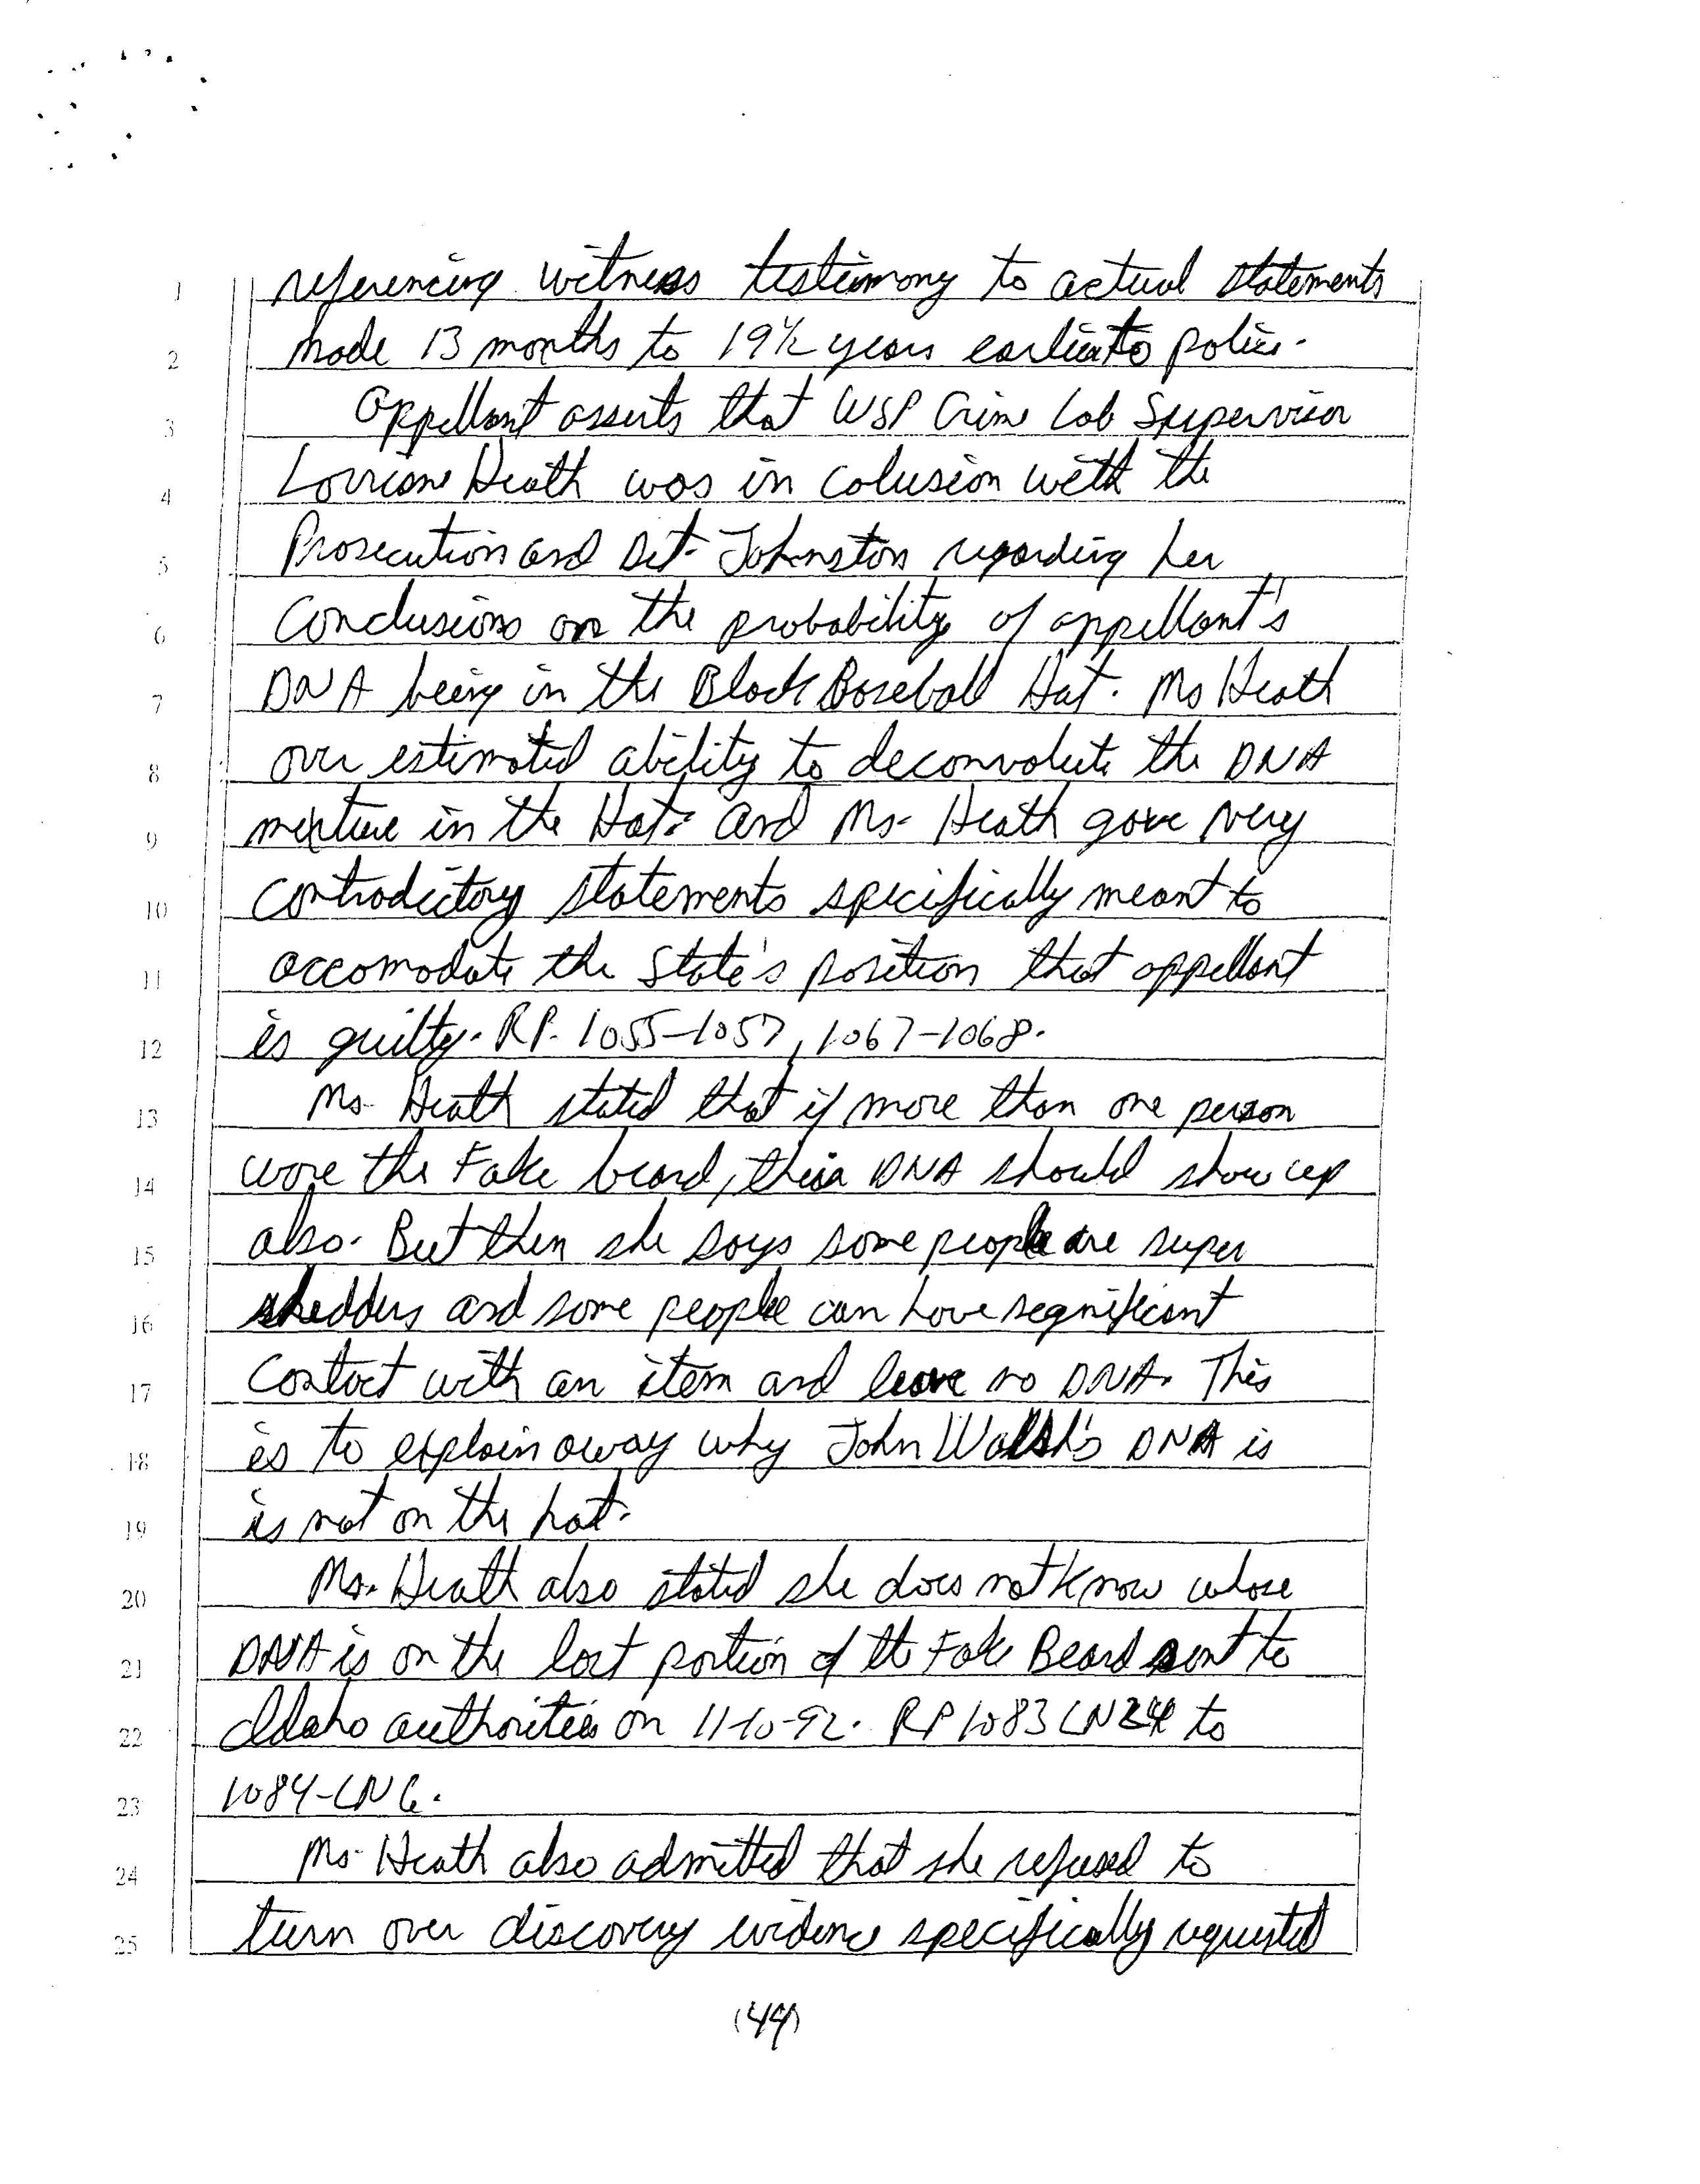 1 referencing witness testimony to actual statements
2 made 13 months to 19½ years earlier to police.
3 Appellant asserts that WSP Crime Lab Supervisor
4 Lorriane Heath was in colusion with the
5 Prosecution and Det. Johnston regarding her
6 Conclusions on the probability of appellant's
7 DNA being in the Black Baseball Hat. Ms Heath
8 over estimated ability to deconvolute the DNA
9 mixture in the Hat. and Ms. Heath gave very
10 contradictory statements specifically meant to
11 accomodate the State's position that appellant
12 is guilty. RP. 1055-1057, 1067-1068.
13 Ms. Heath stated that if more than one person
14 wore the Fake beard, their DNA should show up
15 also. But then she says some people are super
16 shedders and some people can have significant
17 Contact with an item and leave no DNA. This
18 is to explain away why John Walsh's DNA is
19 is not on the hat.
20 Ms. Heath also stated she does not know whose
21 DNA is on the lost portion of the Fake Beard sent to
22 Idaho authorities on 11-10-92. RP 1083 LN 24 to
23 1084-LN 6.
24 Ms. Heath also admitted that she refused to
25 turn over discovery evidence specifically requested
(44)